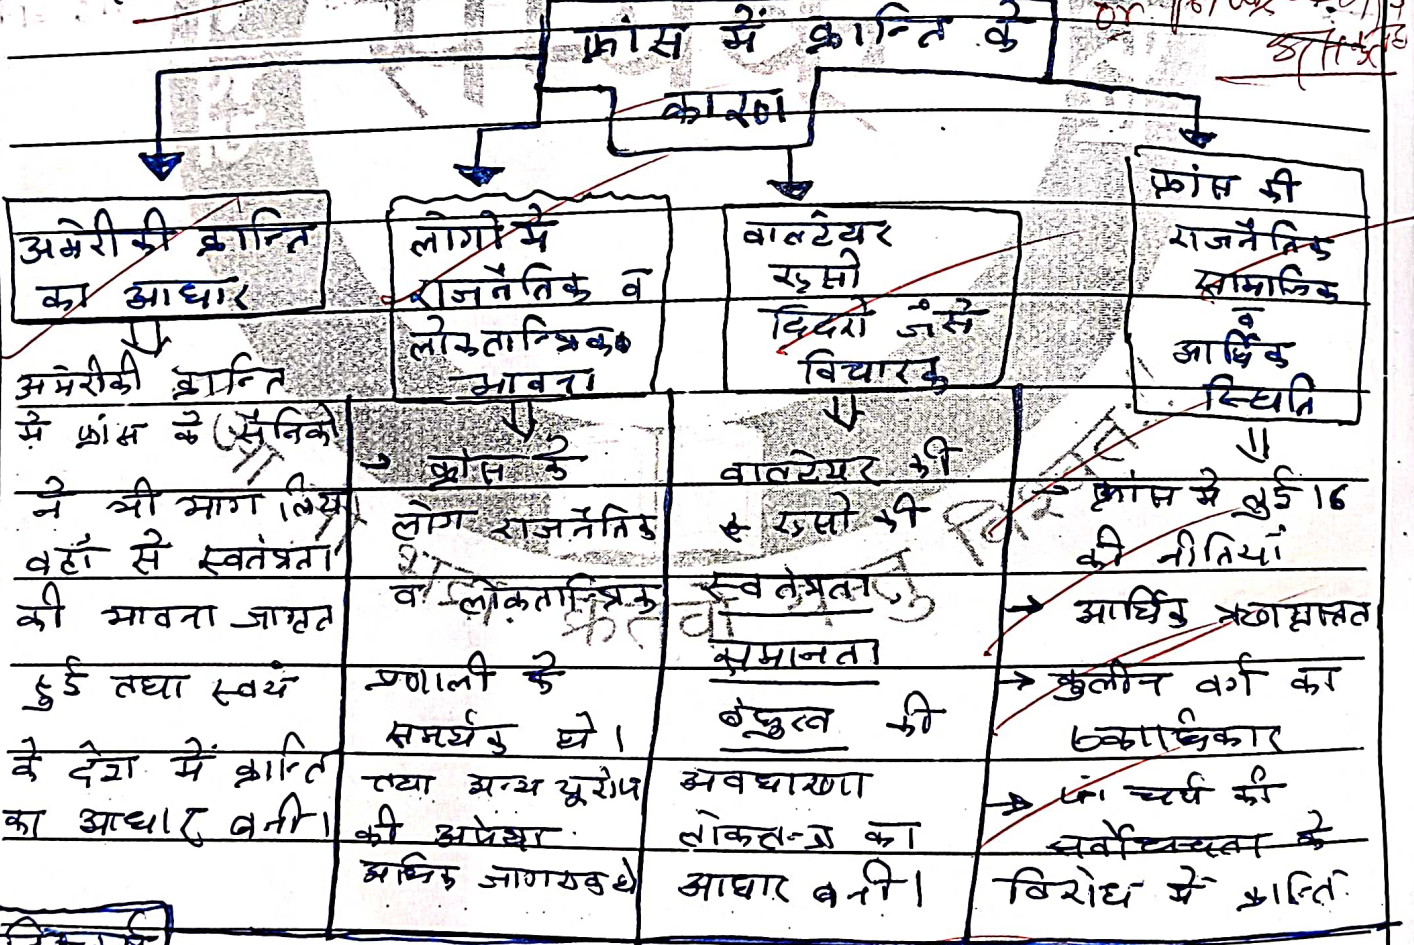 फ्रांस में क्रान्ति के
कारण
अमेरीकी क्रान्ति
का आधार
अमेरीकी क्रान्ति
में फ्रांस के (सैनिको
ने भी भाग लिया
वहाँ से स्वतंत्रता
की भावना जागृत
हुई तथा स्वयं
के देश में क्रान्ति
का आधार बनी।
लोगो में
राजनैतिक व
लोकतान्त्रिक
भावना
→ फ्रांस के
लोग राजनैतिक
व लोकतान्त्रिक
प्रणाली के
समर्थक थे।
तथा अन्य यूरोप
की अपेक्षा
अधिक जागरुक थे
वाल्टेयर
रूसो
दिदरो जैसे
विचारक
वाल्टेयर की
रूसो की
स्वतंत्रता
समानता
बंधुत्व की
अवधारणा
लोकतन्त्र का
आधार बनी।
फ्रांस की
राजनैतिक
सामाजिक
व
आर्थिक
स्थिति
→ फ्रांस में लुई 16
की नीतियाँ
→ आर्थिक ऋणग्रस्तता
→ कुलीन वर्ग का
एकाधिकार
→ चर्च की
सर्वोच्चता के
विरोध में क्रान्ति
or
निष्कर्ष